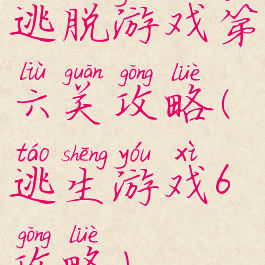 逃脱游戏第
liù guān gōng lüè
六关攻略(
táo shēng yóu xì
逃生游戏6
gōng lüè
攻略)